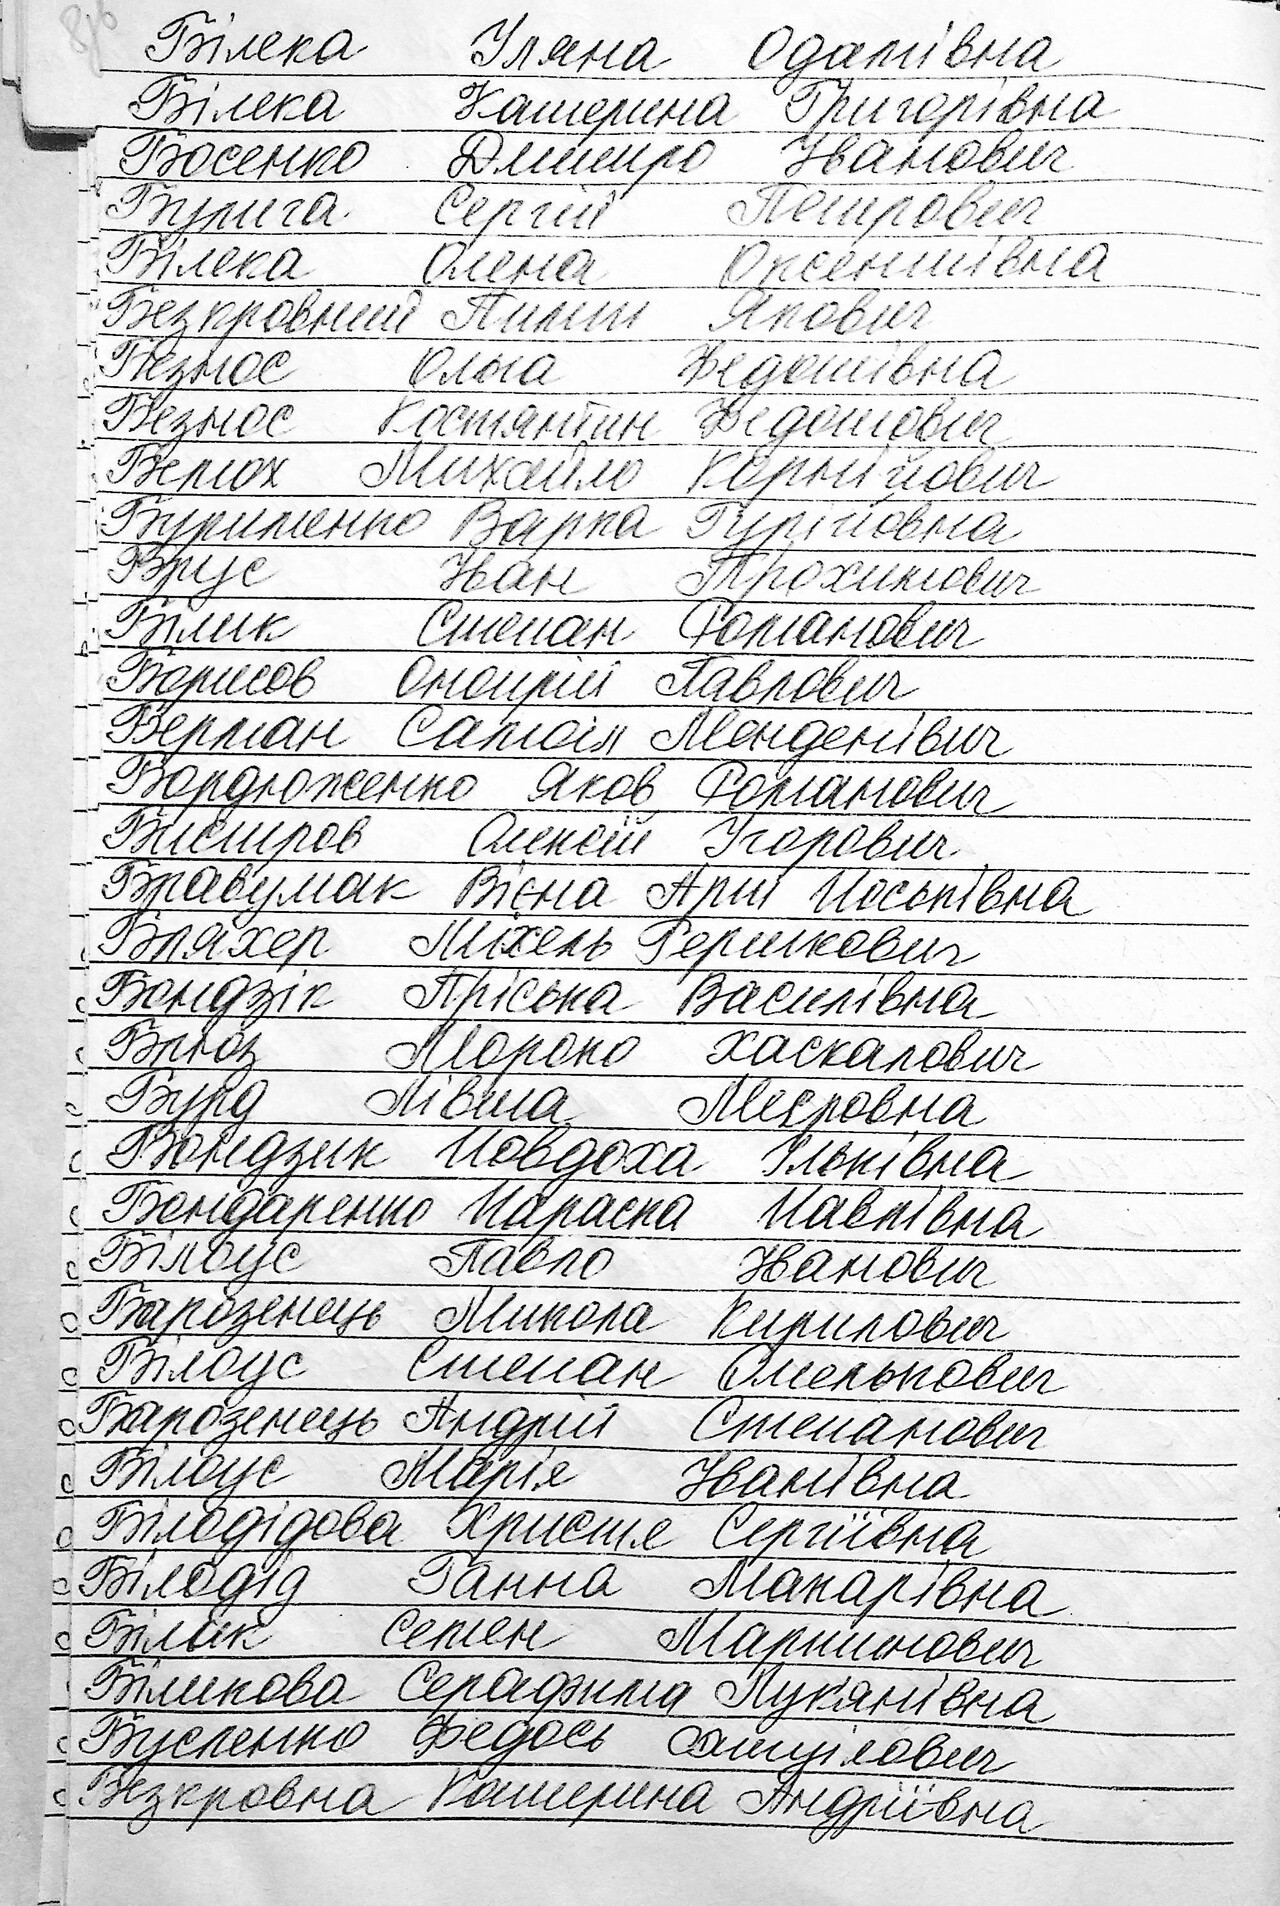 Білека Уляна Адамівна
Білека Катерина Григорівна
Босенко Дмитро Іванович
Булига Сергій Петрович
Білека Олена Оксентіївна
Безкровний Пилип Якович
Безнос Ольга Федотівна
Безнос Костянтин Федотович
Белюх Михайло Корнійович
Бурименко Варка Гурійовна
Брус Іван Трохимович
Білик Степан Романович
Борисов Онопрій Павлович
Берман Самоіл
Бордюженко Яков Романович
Бистров Олексій Угорович
Вієна Иоськівна
Бляхер Міхель Гершкович
Бондзік Пріська Василівна
Хаскалович
Бурд Меєровна
Бондзик Повдоха Ільківна
Бондаренко Параска Павлівна
Білоус Павло Іванович
Барозенець Микола Кирилович
Білоус Степан Омелькович
Барозенець Андрій Степанович
Білоус Марія Іванівна
Білодідова Христя Сергіївна
Білодід Ганна Макарівна
Білик Семен Мартинович
Біликова Серафима Лук'янівна
Бусленко Федось
Безкровна Катерина Андріївна